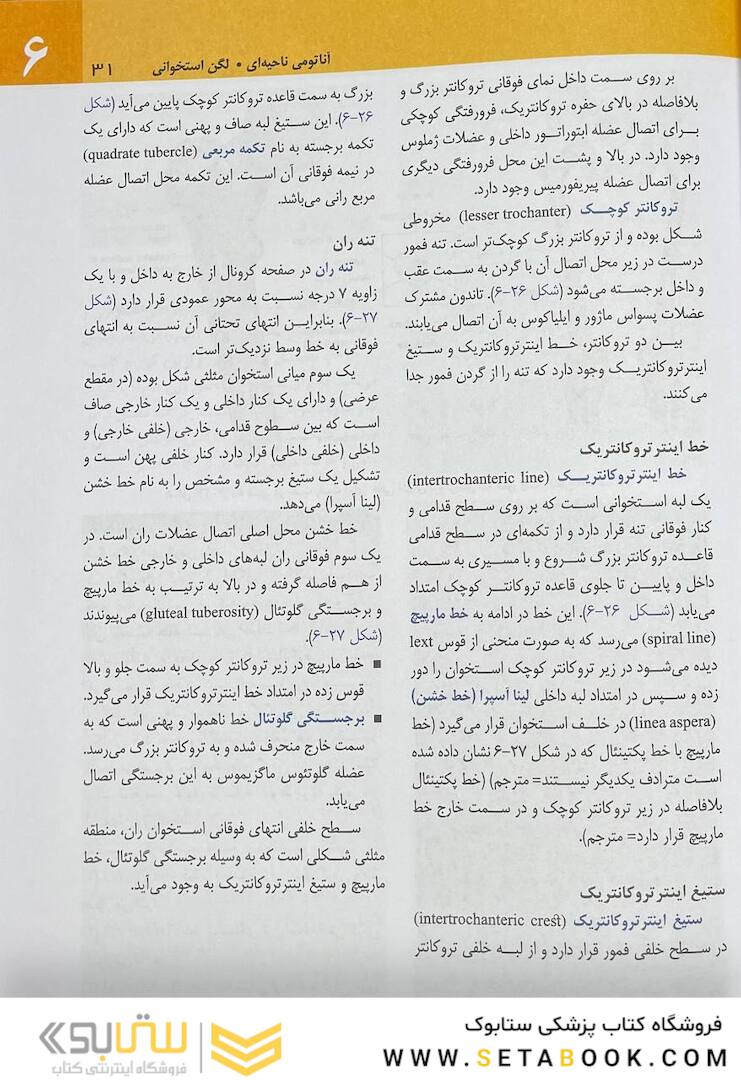 ۶
آناتومی ناحیه‌ای • لگن استخوانی ۳۱
بر روی سـمت داخل نمای فوقانی تروکانتر بزرگ و
بلافاصله در بالای حفره تروکانتریک، فرورفتگی کوچکی
بـرای اتصال عضله ابتوراتـور داخلی و عضلات ژملوس
وجود دارد. در بالا و پشت این محل فرورفتگی دیگری
برای اتصال عضله پیریفورمیس وجود دارد.
تروکانتر کوچـک (lesser trochanter) مخروطی
شـکل بوده و از تروکانتر بزرگ کوچک‌تر است. تنه فمور
درسـت در زیر محل اتصال آن با گردن به سـمت عقب
و داخل برجسـته می‌شود (شکل ۲۶-۶). تاندون مشترک
عضلات پسواس ماژور و ایلیاکوس به آن اتصال می‌یابند.
بیـن دو تروکانتر، خـط اینترتروکانتریک و سـتیغ
اینترتروکانتریـک وجود دارد که تنه را از گردن فمور جدا
می‌کنند.
خط اینترتروکانتریک
خط اینترتروکانتریـک (intertrochanteric line)
یک لبه اسـتخوانی است که بر روی سطح قدامی و
کنار فوقانی تنه قرار دارد و از تکمه‌ای در سـطح قدامی
قاعـده تروکانتر بزرگ شـروع و با مسـیری به سـمت
داخل و پایین تا جلوی قاعده تروکانتـر کوچک امتداد
می‌یابد (شـکل ۲۶-۶). این خط در ادامه به خط مارپیچ
(spiral line) می‌رسد که به صورت منحنی از قوس lext
دیده می‌شـود در زیر تروکانتر کوچک اسـتخوان را دور
زده و سـپس در امتداد لبه داخلی لینا آسپرا (خط خشن)
(linea aspera) در خلـف استخوان قرار می‌گیرد (خط
مارپیچ با خط پکتینئال که در شکل ۲۷-۶ نشان داده شده
است مترادف یکدیگر نیستند= مترجم) (خط پکتینئال
بلافاصله در زیر تروکانتر کوچک و در سـمت خارج خط
مارپیچ قرار دارد= مترجم).
ستیغ اینترتروکانتریک
ستیغ اینترتروکانتریک (intertrochanteric crest)
در سـطح خلفی فمور قرار دارد و از لبـه خلفی تروکانتر
بزرگ به سمت قاعده تروکانتر کوچک پایین می‌آید (شکل
۲۶-۶). این سـتیغ لبه صاف و پهنی است که دارای یک
تکمه برجسته به نام تکمه مربعی (quadrate tubercle)
در نیمه فوقانی آن اسـت. این تکمه محل اتصال عضله
مربع رانی می‌باشد.
تنه ران
تنه ران در صفحه کرونال از خارج به داخل و با یک
زاویه ۷ درجه نسـبت به محور عمودی قرار دارد (شکل
۲۷-۶). بنابرایـن انتهای تحتانی آن نسـبت به انتهای
فوقانی به خط وسط نزدیک‌تر است.
یک سوم میانی استخوان مثلثی شکل بوده (در مقطع
عرضی) و دارای یک کنار داخلی و یک کنار خارجی صاف
است که بین سـطوح قدامی، خارجی (خلفی خارجی) و
داخلی (خلفی داخلی) قرار دارد. کنار خلفی پهن اسـت و
تشـکیل یک ستیغ برجسته و مشخص را به نام خط خشن
(لینا آسپرا) می‌دهد.
خط خشن محل اصلی اتصال عضلات ران است. در
یک سوم فوقانی ران لبه‌های داخلی و خارجی خط خشن
از هـم فاصله گرفته و در بالا به ترتیـب به خط مارپیچ
و برجستگی گلوتئال (gluteal tuberosity) می‌پیوندند
(شکل ۲۷-۶).
■ خط مارپیچ در زیر تروکانتر کوچک به سمت جلو و بالا
قوس زده در امتداد خط اینترتروکانتریک قرار می‌گیرد.
■ برجسـتگی گلوتئال خط ناهموار و پهنی است که به
سـمت خارج منحرف شده و به تروکانتر بزرگ می‌رسد.
عضله گلوتئوس ماگزیموس به این برجستگی اتصال
می‌یابد.
سـطح خلفی انتهای فوقانی اسـتخوان ران، منطقه
مثلثی شـکلی است که به وسیله برجستگی گلوتئال، خط
مارپیچ و ستیغ اینترتروکانتریک به وجود می‌آید.
فروشگاه کتاب پزشکی ستابوک
WWW.SETABOOK.COM
ستابوک
فروشگاه اینترنتی کتاب